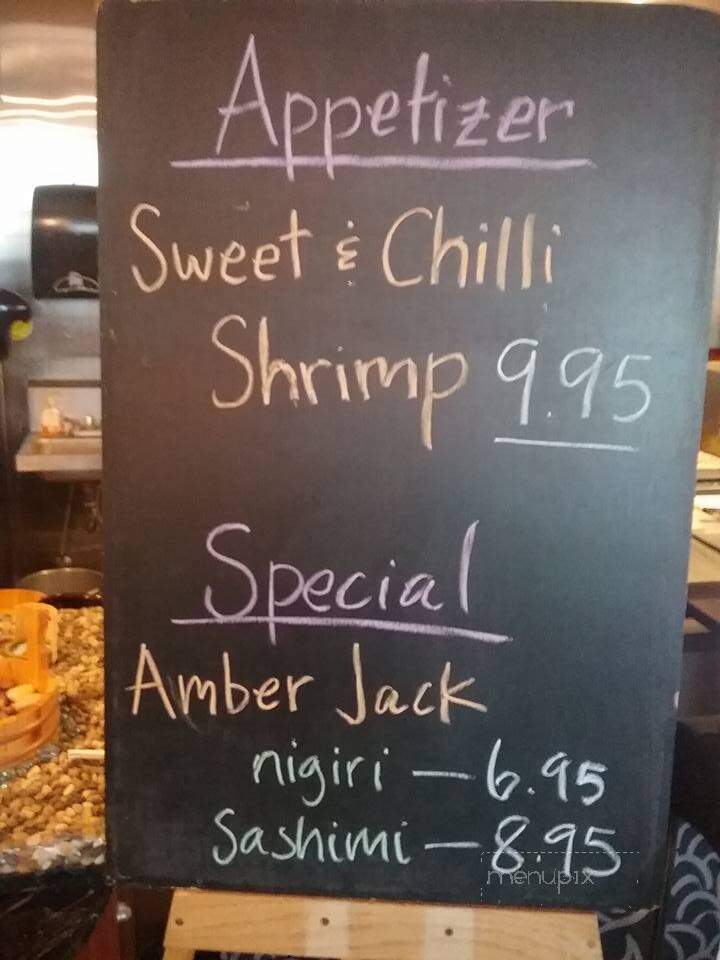 Appetizer
Sweet & Chilli
Shrimp 9.95
Special
Amber Jack
nigiri — 6.95
Sashimi — 8.95
menupix